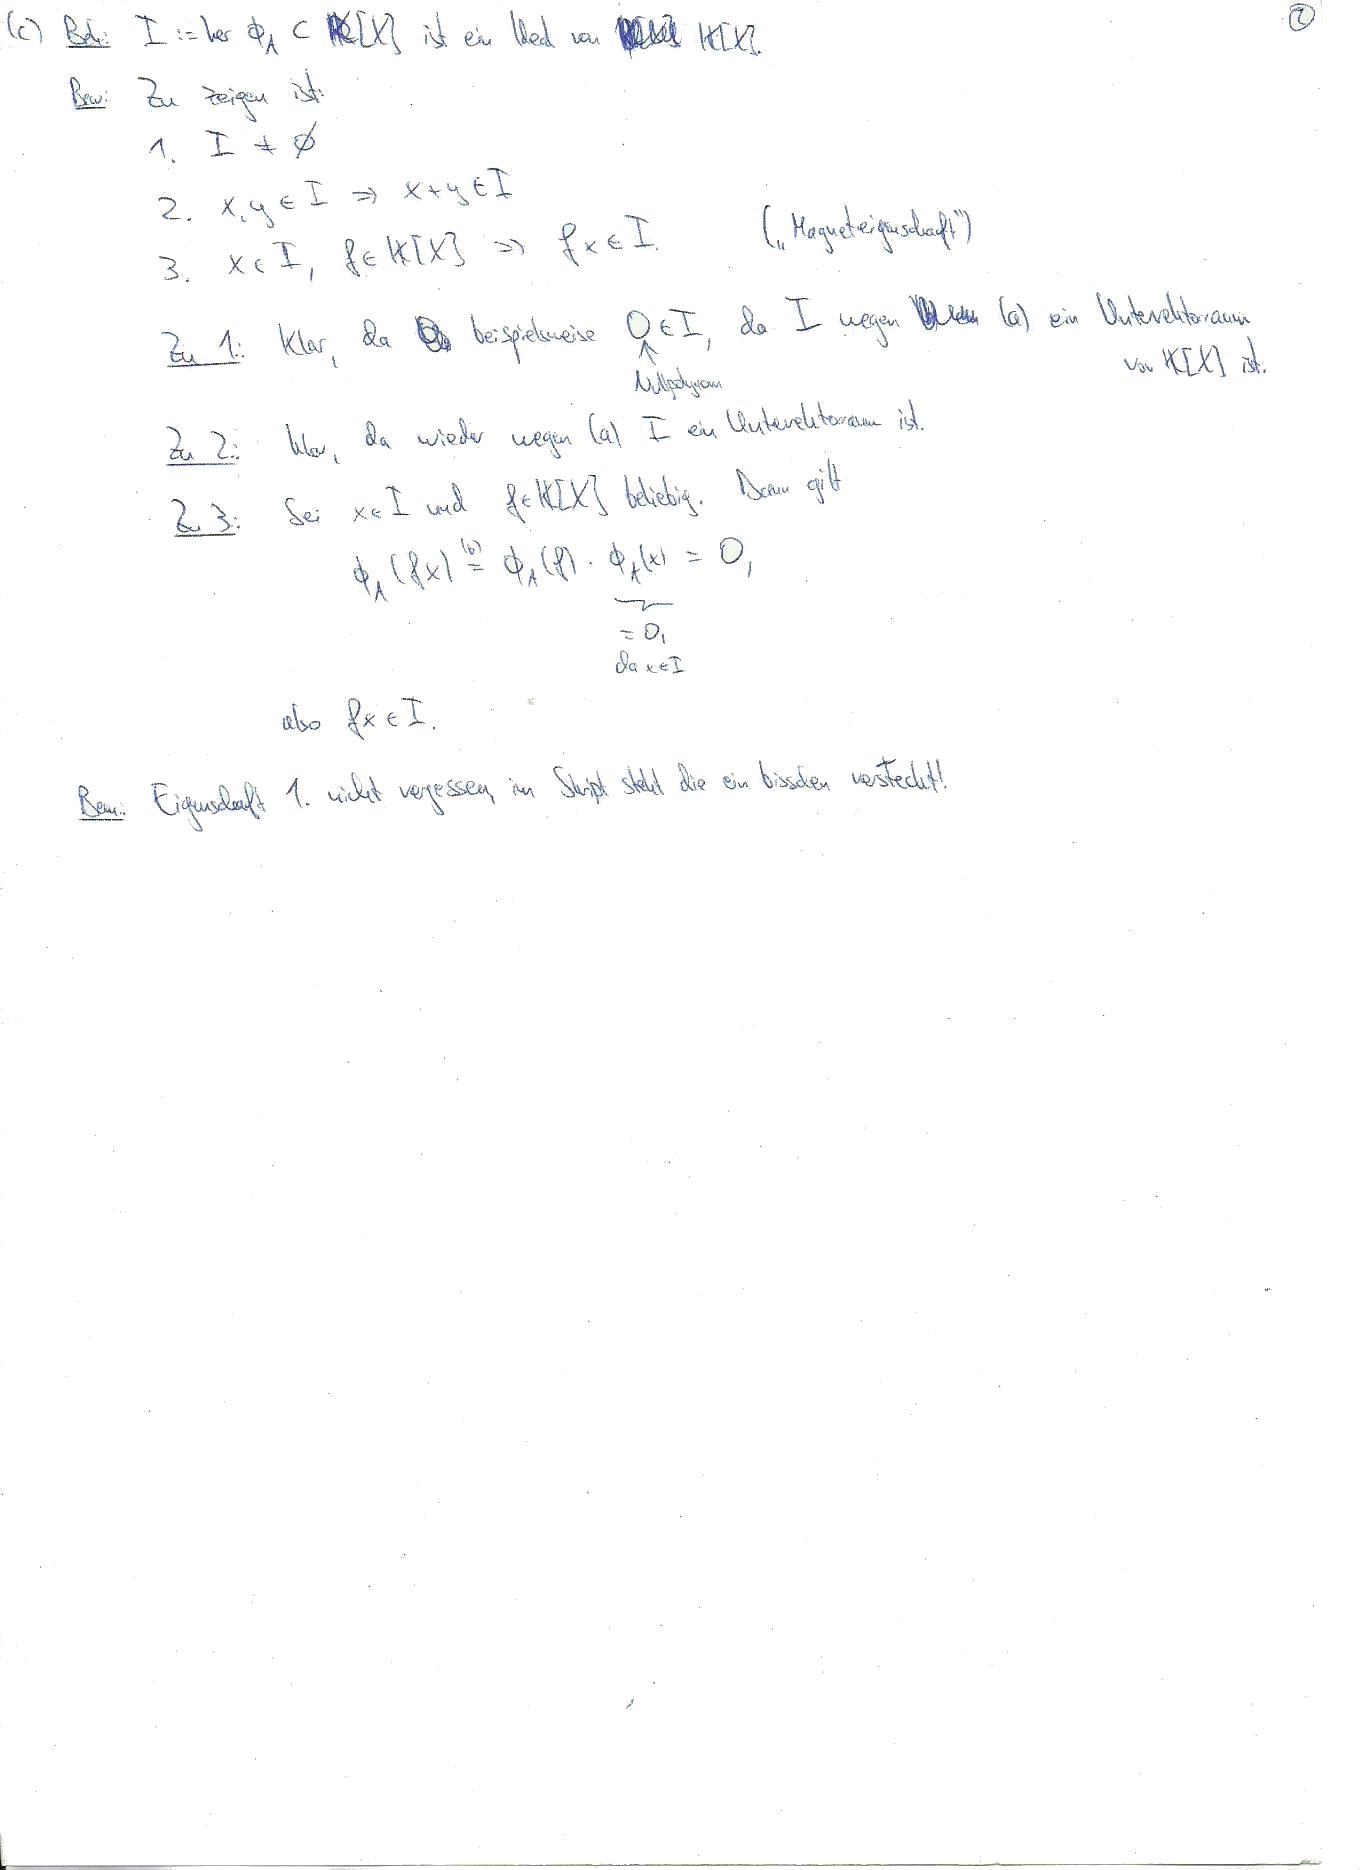 ②
(c) Beh: I := ker ϕ_A ⊂ 𝕂[X] ist ein Ideal von 𝕂[X].
Bew: Zu zeigen ist:
1. I ≠ ∅
2. x, y ∈ I ⇒ x+y ∈ I
3. x ∈ I, f ∈ 𝕂[X] ⇒ fx ∈ I. („Magneteigenschaft")
Zu 1.: Klar, da beispielsweise 0 ∈ I, da I wegen (a) ein Untervektorraum
↑ von 𝕂[X] ist.
Nullpolynom
Zu 2.: Klar, da wieder wegen (a) I ein Untervektorraum ist.
Zu 3.: Sei x ∈ I und f ∈ 𝕂[X] beliebig. Dann gilt
ϕ_A(fx) =^(b) ϕ_A(f) · ϕ_A(x) = 0,
= 0,
da x ∈ I
also fx ∈ I.
Bem.: Eigenschaft 1. nicht vergessen, im Skript steht die ein bisschen versteckt!